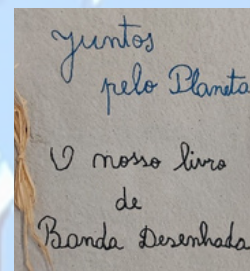 Juntos
pelo Planeta
O nosso livro
de
Banda Desenhada